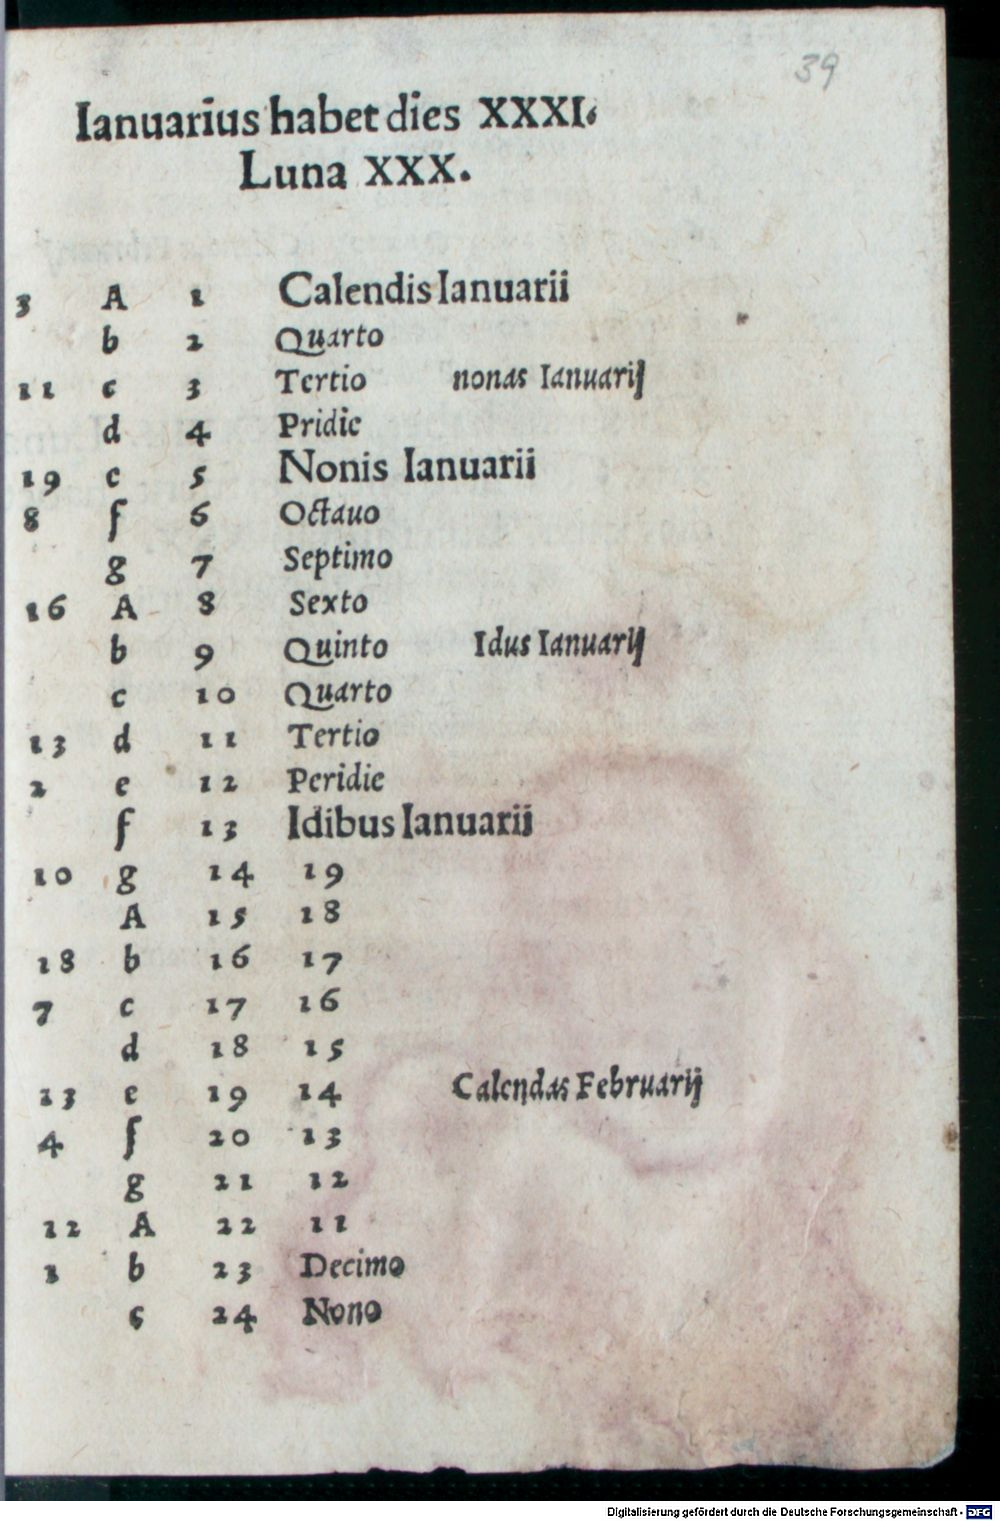 39
Ianuarius habet dies XXXI.
Luna XXX.
3 A 1 Calendis Ianuarii
b 2 Quarto
11 c 3 Tertio nonas Ianuarij
d 4 Pridie
19 e 5 Nonis Ianuarii
8 f 6 Octauo
g 7 Septimo
16 A 8 Sexto
b 9 Quinto Idus Ianuarij
c 10 Quarto
13 d 11 Tertio
2 e 12 Peridie
f 13 Idibus Ianuarii
10 g 14 19
A 15 18
18 b 16 17
7 c 17 16
d 18 15
13 e 19 14 Calendas Februarij
4 f 20 13
g 21 12
12 A 22 11
1 b 23 Decimo
c 24 Nono
Digitalisierung gefördert durch die Deutsche Forschungsgemeinschaft - DFG